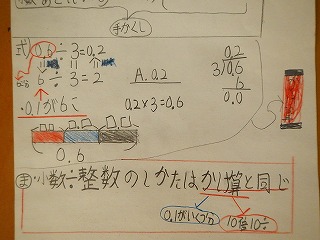 手かくし
式) 0.6÷3=0.2
6÷3=2
A. 0.2
0.2×3=0.6
0.1が6こ
0.2
3)0.6
6
0.0
0.6
ま・小数÷整数のしかたはかけ算と同じ
0.1がいくつ分
10倍10÷